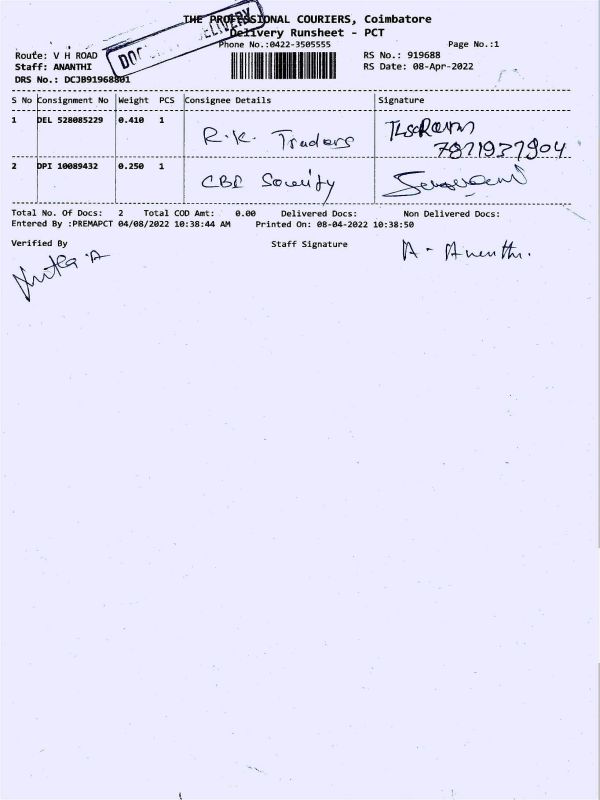 THE PROFESSIONAL COURIERS, Coimbatore
Delivery Runsheet - PCT
Phone No.:0422-3505555 Page No.:1
DOOR DELIVERY
Route: V H ROAD RS No.: 919688
Staff: ANANTHI RS Date: 08-Apr-2022
DRS No.: DCJB91968801
S No Consignment No Weight PCS Consignee Details Signature
1 DEL 528085229 0.410 1
R.K. Traders
7871937904
2 DPI 10089432 0.250 1
Total No. Of Docs: 2 Total COD Amt: 0.00 Delivered Docs: Non Delivered Docs:
Entered By :PREMAPCT 04/08/2022 10:38:44 AM Printed On: 08-04-2022 10:38:50
Verified By Staff Signature A. Ananthi.